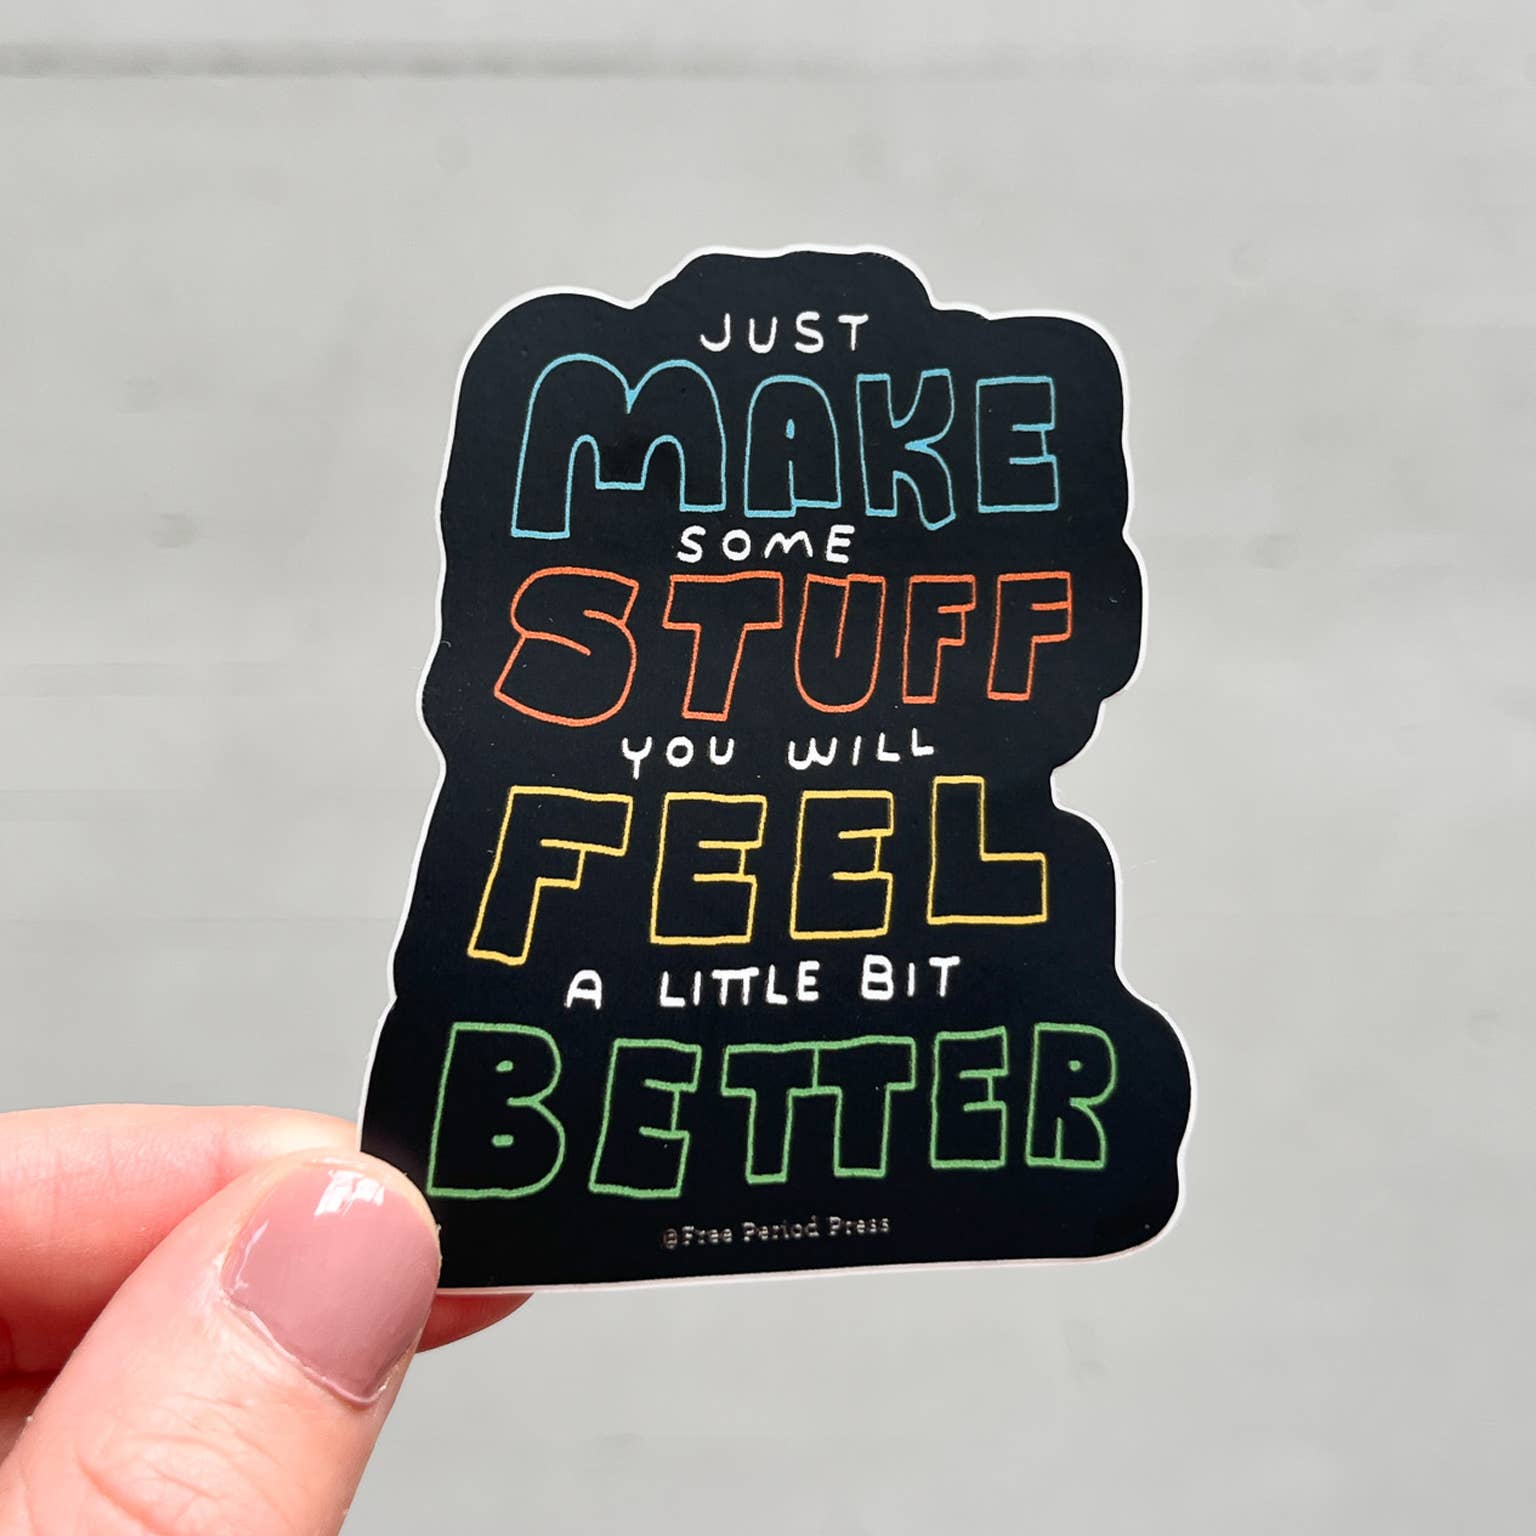 JUST
MAKE
SOME
STUFF
YOU WILL
FEEL
A LITTLE BIT
BETTER
@Free Period Press